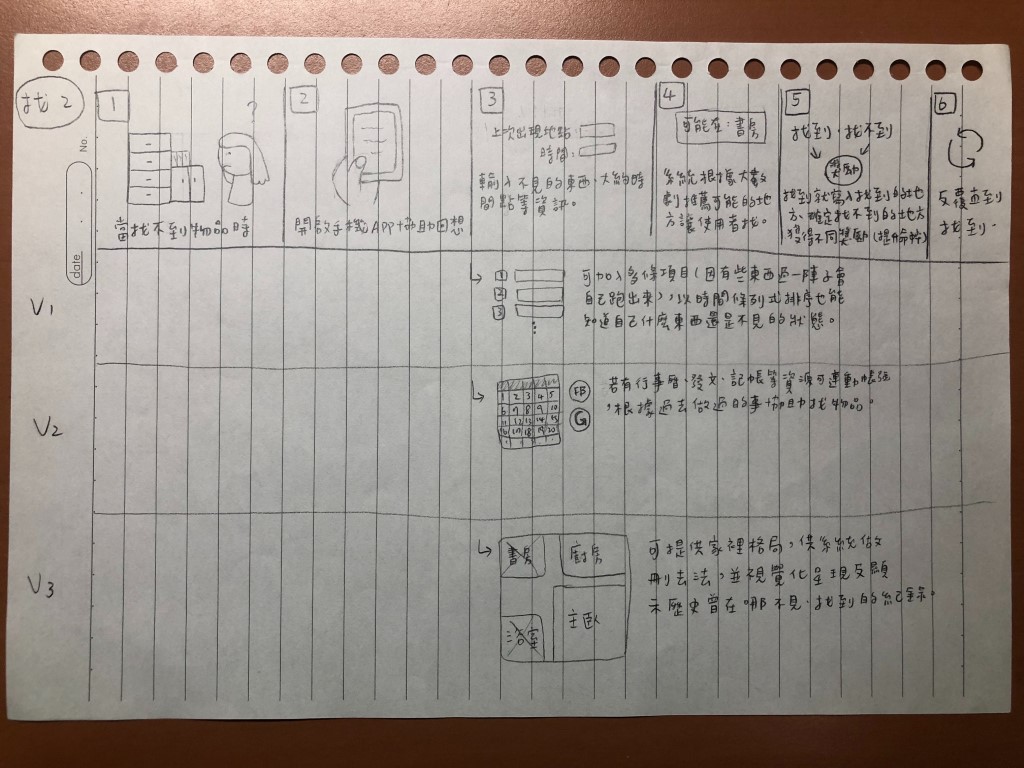 找2
No.
date
1
?
當找不到物品時
2
開啟手機APP協助回想
3
上次出現地點:
時間:
輸入不見的東西,大約時
間點等資訊。
4
可能在:書房
系統根據大數
劇推薦可能的地
方讓使用者找。
5
找到.找不到
獎勵
找到就寫入找到的地
方、確定找不到的地方
獲得不同獎勵(提愉幹)
6
反覆直到
找到.
V1
1
2
3
可加入多條項目(因有些東西過一陣子會
自己跑出來),以時間條列式排序也能
知道自己什麼東西還是不見的狀態。
V2
1 2 3 4 5
6 7 8 9 10
11 12 13 14 15
16 17 18 19 20
FB
G
若有行事曆、發文、記帳等資源可連動帳號
,根據過去做過的事協助找物品。
V3
書房
廚房
浴室
主臥
可提供家裡格局,供系統做
刪去法,並視覺化呈現及顯
示歷史曾在哪不見.找到的紀錄。